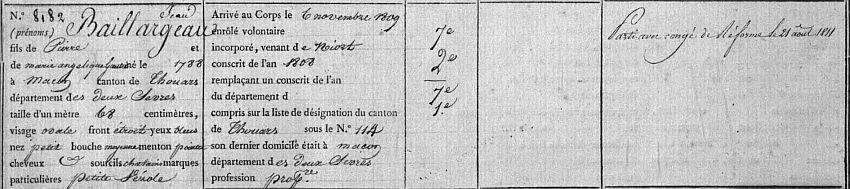 N.° 8182 Jean
(prénoms) Baillargeau
fils de Pierre et
de marie angelique né le 1788
à Macon canton de Thouars
département des deux Sevres
taille d'un mètre 68 centimètres,
visage ovale front étroit yeux bleus
nez petit bouche moyenne menton pointu
cheveux & sourcils chatains marques
particulières petite Vérole
Arrivé au Corps le 6 novembre 1809
enrôlé volontaire
incorporé, venant de Niort
conscrit de l'an 1808
remplaçant un conscrit de l'an
du département d
compris sur la liste de désignation du canton
de Thouars sous le N.° 114
son dernier domicile était à macon
département des deux Sevres
profession prop.re
7e
2e
7e
1e
Parti avec congé de Réforme le 21 août 1811